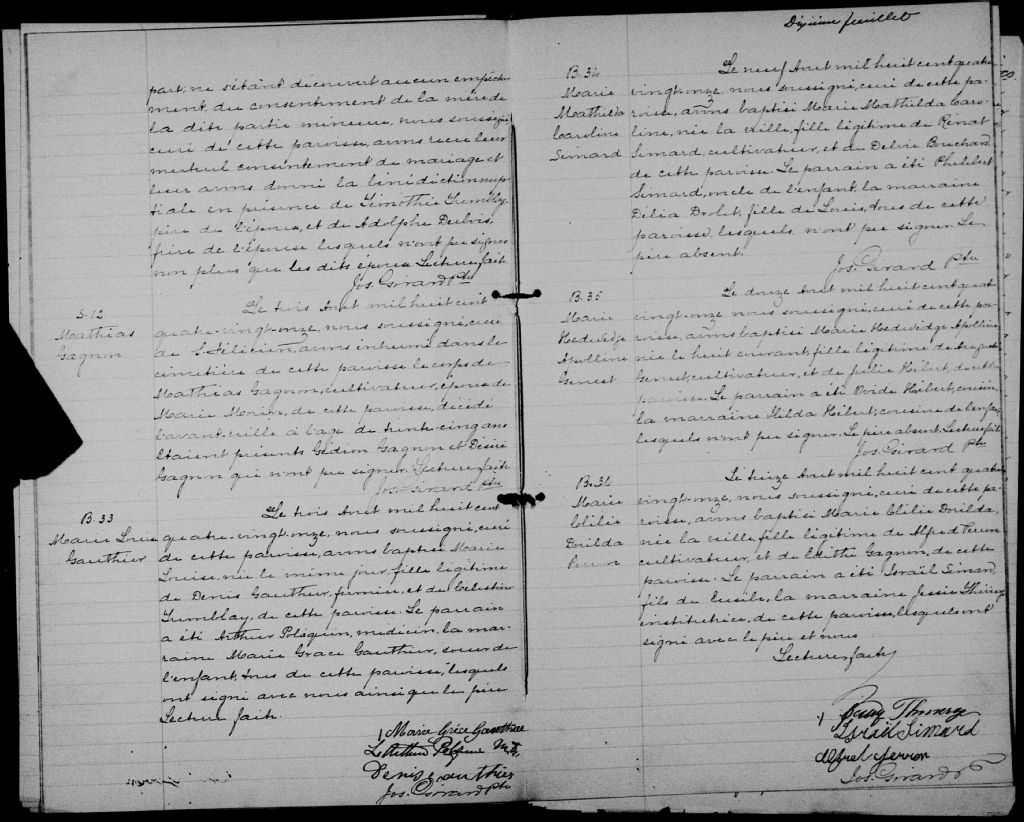 part, ne s'étant découvert aucun empêche-
ment, du consentement de la mère de
la dite partie mineure, nous soussigné
curé de cette paroisse, avons reçu leur
mutuel consentement de mariage et
leur avons donné la bénédiction nup-
tiale en présence de Timothée Tremblay
père de l'épouse, et de Adolphe Dubois,
frère de l'épouse lesquels n'ont pu signer
non plus que les dits époux. Lecture faite
Jos. Girard Ptre
S. 12
Mathias
Gagnon
Le trois Aout mil huit cent
quatre-vingt-onze, nous soussigné, curé
de St Félicien, avons inhumé dans le
cimetière de cette paroisse le corps de
Mathias Gagnon, cultivateur, époux de
Marie Morin, de cette paroisse, décédé
l'avant-veille à l'age de trente-cinq ans
Etaient présents Gédéon Gagnon et Désiré
Gagnon qui n'ont pu signer. Lecture faite
Jos. Girard Ptre
B. 33
Marie Louise
Gauthier
Le trois Aout mil huit cent
quatre-vingt-onze, nous soussigné, curé
de cette paroisse, avons baptisé Marie
Louise, née le même jour, fille légitime
de Denis Gauthier, fermier, et de Célestine
Tremblay, de cette paroisse. Le parrain
a été Arthur Poliquin, médecin, la mar-
raine Marie Grace Gauthier, soeur de
l'enfant, tous de cette paroisse, lesquels
ont signé avec nous ainsi que le père
Lecture faite.
Marie Grâce Gauthier
Arthur
Denis Gauthier
Jos. Girard Ptre
Dixième feuillet
B. 34
Marie
Mathilda
Caroline
Simard
Le neuf Aout mil huit cent quatre
vingt-onze, nous soussigné, curé de cette pa-
roisse, avons baptisé Marie Mathilda Caro-
line, née la veille, fille légitime de Rénat
Simard, cultivateur, et de Delvie Bouchard
de cette paroisse. Le parrain a été Philibert
Simard, oncle de l'enfant, la marraine
Délia Drolet, fille de Louis, tous de cette
paroisse, lesquels n'ont pu signer. Le
père absent.
Jos. Girard Ptre
B. 35
Marie
Hedwidge
Apolline
Genest
Le douze Aout mil huit cent quatre
vingt-onze, nous soussigné, curé de cette pa-
roisse, avons baptisé Marie Hedwidge Apolline
née le huit courant, fille légitime de Auguste
Genest, cultivateur, et de Julie Hébert, de cette
paroisse. Le parrain a été Ovide Hébert, cousin
la marraine Hilda Hébert, cousine de l'enfant,
lesquels n'ont pu signer. Le père absent. Lecture faite
Jos. Girard Ptre
B. 36
Marie
Clélie
Dorilda
Perron
Le treize Aout mil huit cent quatre
vingt-onze, nous soussigné, curé de cette pa-
roisse, avons baptisé Marie Clélie Dorilda,
née la veille, fille légitime de Alfred Perron
cultivateur, et de Edithe Gagnon, de cette
paroisse. Le parrain a été Israël Simard,
fils de Eusèbe, la marraine Jessie
institutrice, de cette paroisse, lesquels ont
signé avec le père et nous
Lecture faite
Israël Simard
Alfred Perron
Jos. Girard Ptre